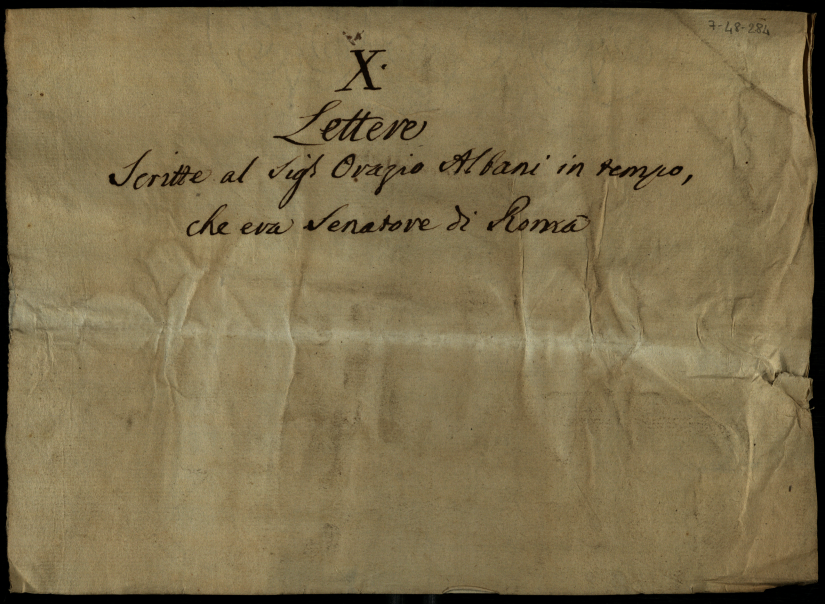 7-48-284
X.
Lettere
Scritte al Sigr Orazio Albani in tempo,
che era Senatore di Roma